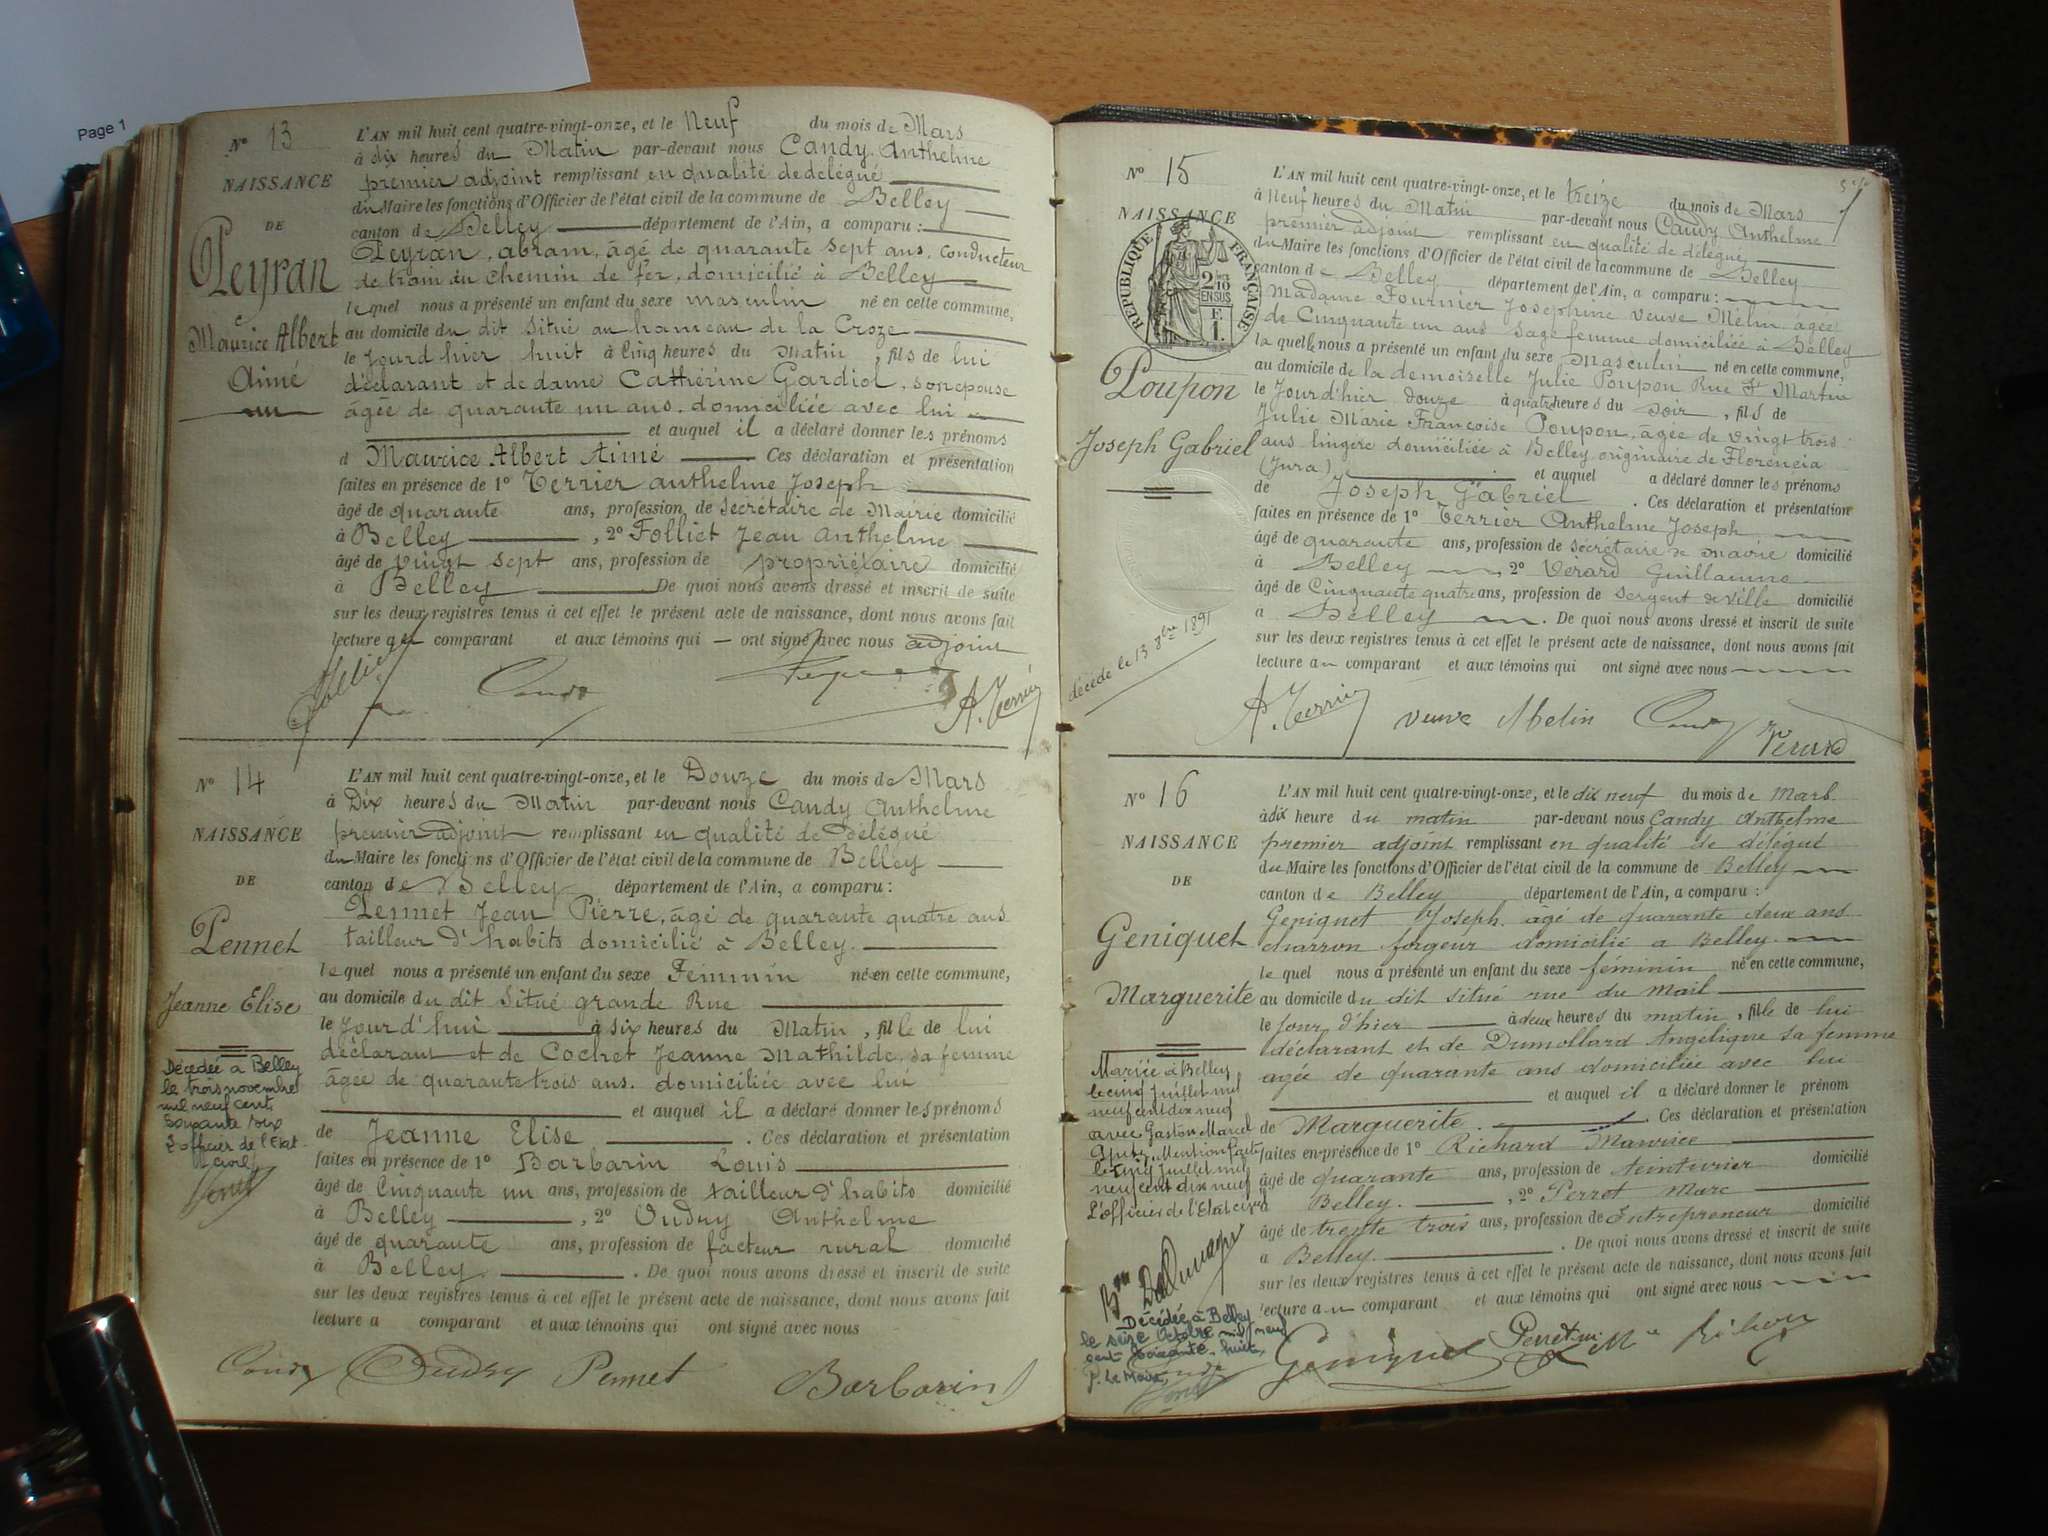 Page 1
N° 13
NAISSANCE
DE
Peyran
Maurice Albert
Aimé
L'AN mil huit cent quatre-vingt-onze, et le Neuf du mois de Mars
à dix heures du Matin par-devant nous Candy Anthelme
premier adjoint remplissant en qualité de délégué
du Maire les fonctions d'Officier de l'état civil de la commune de Belley
canton de Belley département de l'Ain, a comparu :
Peyran, abram, âgé de quarante sept ans, conducteur
de train du chemin de fer, domicilié à Belley
lequel nous a présenté un enfant du sexe masculin né en cette commune,
au domicile du dit situé au hameau de la Croze
le jourd'hier huit à Cinq heures du Matin, fils de lui
déclarant et de dame Cathérine Gardiol, son epouse
âgée de quarante un ans. domiciliée avec lui
et auquel il a déclaré donner les prénoms
d Maurice Albert Aimé Ces déclaration et présentation
faites en présence de 1° Terrier anthelme Joseph
âgé de quarante ans, profession de Secrétaire de Mairie domicilié
à Belley, 2° Folliet Jean Anthelme
âgé de vingt sept ans, profession de propriétaire domicilié
à Belley De quoi nous avons dressé et inscrit de suite
sur les deux registres tenus à cet effet le présent acte de naissance, dont nous avons fait
lecture au comparant et aux témoins qui ont signé avec nous adjoint
Folliet Candy A. Terrier
N° 14
NAISSANCE
DE
Pennet
Jeanne Elise
Décédée à Belley
le trois novembre
mil neuf cent
soixante six
L'officier de l'Etat
civil
L'AN mil huit cent quatre-vingt-onze, et le Douze du mois de Mars
à Dix heures du Matin par-devant nous Candy Anthelme
premier adjoint remplissant en qualité de Délégué
du Maire les fonctions d'Officier de l'état civil de la commune de Belley
canton de Belley département de l'Ain, a comparu :
Pennet Jean Pierre, âgé de quarante quatre ans
tailleur d'habits domicilié à Belley.
lequel nous a présenté un enfant du sexe Féminin né en cette commune,
au domicile du dit Situé grande Rue
le Jour d'hui à six heures du Matin, fille de lui
déclarant et de Cochet Jeanne Mathilde, sa femme
âgée de quarante trois ans. domiciliée avec lui
et auquel il a déclaré donner les prénoms
de Jeanne Elise. Ces déclaration et présentation
faites en présence de 1° Barbarin Louis
âgé de Cinquante un ans, profession de tailleur d'habits domicilié
à Belley, 2° Oudry Anthelme
âgé de quarante ans, profession de facteur rural domicilié
à Belley. De quoi nous avons dressé et inscrit de suite
sur les deux registres tenus à cet effet le présent acte de naissance, dont nous avons fait
lecture a comparant et aux témoins qui ont signé avec nous
Candy Oudry Pennet Barbarin
N° 15
NAISSANCE
RÉPUBLIQUE FRANÇAISE
2/10 EN SUS
F. 1.
Poupon
Joseph Gabriel
décédé le 13 8bre 1891
L'AN mil huit cent quatre-vingt-onze, et le treize du mois de Mars
à Neuf heures du Matin par-devant nous Candy Anthelme
premier adjoint remplissant en qualité de délégué
du Maire les fonctions d'Officier de l'état civil de la commune de Belley
canton de Belley département de l'Ain, a comparu :
Madame Fournier Joséphine veuve Melin, âgée
de Cinquante un ans Sage femme domiciliée à Belley
la quelle nous a présenté un enfant du sexe Masculin né en cette commune,
au domicile de la demoiselle Julie Poupon Rue St Martin
le Jourd'hier douze à quatre heures du soir, fils de
Julie Marie Françoise Poupon, âgée de vingt trois
ans lingère domiciliée à Belley originaire de Florencia
(Jura) et auquel a déclaré donner les prénoms
de Joseph Gabriel. Ces déclaration et présentation
faites en présence de 1° Terrier Anthelme Joseph
âgé de quarante ans, profession de Sécrétaire de mairie domicilié
à Belley, 2° Vérard Guillaume
âgé de Cinquante quatre ans, profession de Sergent de ville domicilié
à Belley. De quoi nous avons dressé et inscrit de suite
sur les deux registres tenus à cet effet le présent acte de naissance, dont nous avons fait
lecture au comparant et aux témoins qui ont signé avec nous
A. Terrier veuve Melin Candy Verard
N° 16
NAISSANCE
DE
Geniquet
Marguerite
Mariée à Belley
le cinq Juillet mil
neuf cent dix neuf
avec Gaston Marcel
Mention faite
le cinq Juillet mil
neuf cent dix neuf
L'officier de l'Etat civil
Décédée à Belley
le seize Octobre mil neuf
cent soixante huit
P. Le Maire
L'AN mil huit cent quatre-vingt-onze, et le dix neuf du mois de Mars.
à dix heure du matin par-devant nous Candy Anthelme
premier adjoint remplissant en qualité de délégué
du Maire les fonctions d'Officier de l'état civil de la commune de Belley
canton de Belley département de l'Ain, a comparu :
Geniquet Joseph. âgé de quarante deux ans
charron forgeur domicilié a Belley.
lequel nous a présenté un enfant du sexe féminin né en cette commune,
au domicile du dit situé rue du Mail
le Jour d'hier à deux heures du matin, fille de lui
déclarant et de Dumollard Angelique sa femme
agée de quarante ans domiciliée avec lui
et auquel il a déclaré donner le prénom
de Marguerite. Ces déclaration et présentation
faites en présence de 1° Richard Maurice
âgé de quarante ans, profession de teinturier domicilié
à Belley., 2° Perret Marc
âgé de trente trois ans, profession de Entrepreneur domicilié
a Belley. De quoi nous avons dressé et inscrit de suite
sur les deux registres tenus à cet effet le présent acte de naissance, dont nous avons fait
lecture au comparant et aux témoins qui ont signé avec nous
Geniquet Perret